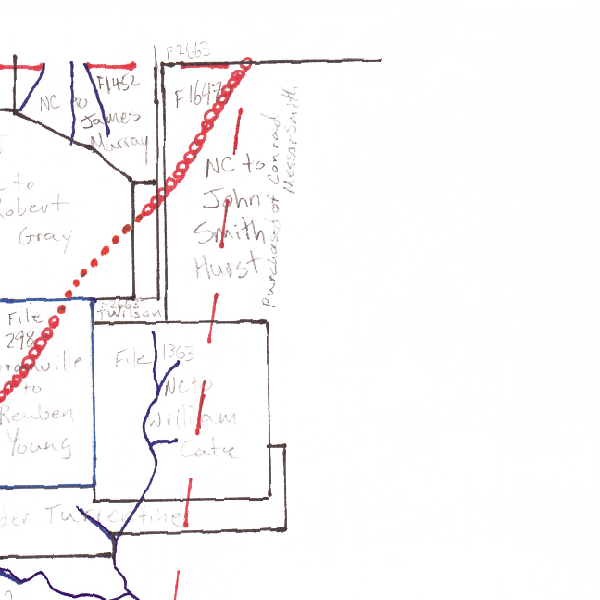 F2663
F1452
NC to
James
Murray
F1697
NC to
John
Smith
Hurst
Purchased of Conrad
Messarsmith
to
Robert
Gray
File
298
to
Reuben
Young
F2663
J Wilson
File 1363
NC to
William
Turpentine